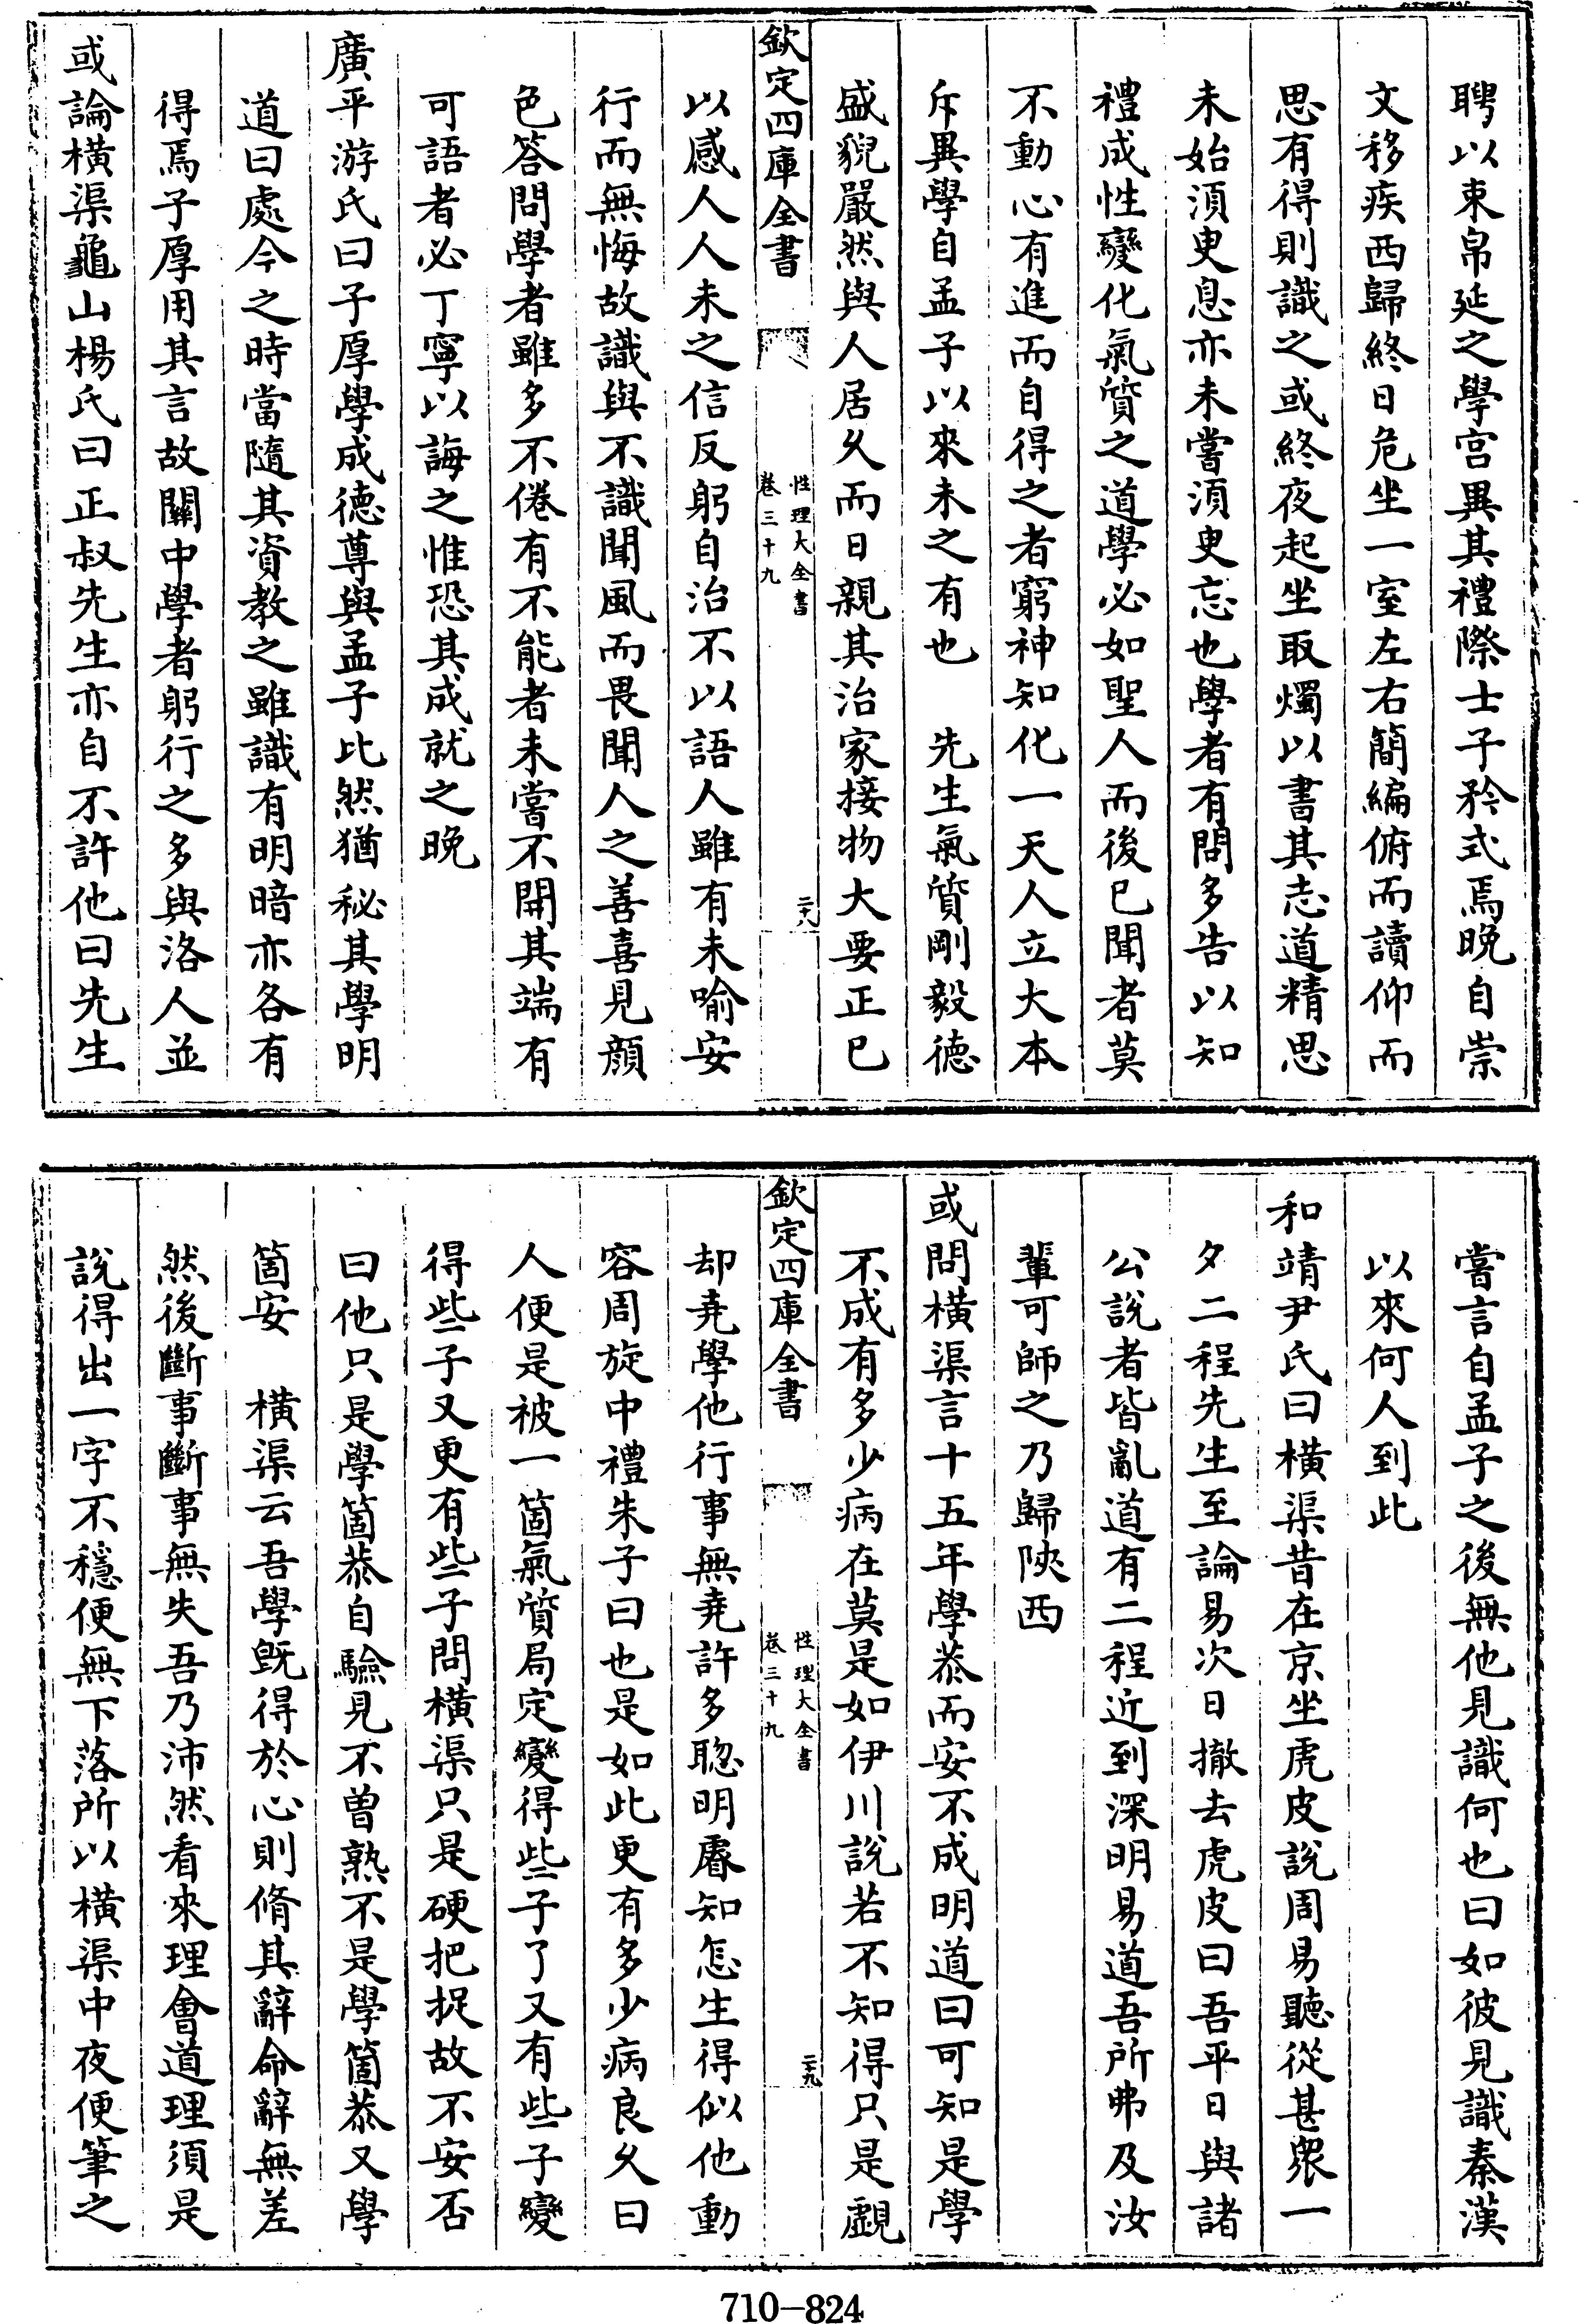 聘以束帛延之學宫異其禮際士子矜式焉晚自崇
文移疾西歸終日危坐一室左右簡編俯而讀仰而
思有得則識之或終夜起坐取燭以書其志道精思
未始須臾息亦未嘗須臾忘也學者有問多告以知
禮成性變化氣質之道學必如聖人而後已聞者莫
不動心有進而自得之者窮神知化一天人立大本
斥異學自孟子以來未之有也　先生氣質剛毅德
盛貌嚴然與人居久而日親其治家接物大要正已
欽定四庫全書
性理大全書
卷三十九
二十八
以感人人未之信反躬自治不以語人雖有未喻安
行而無悔故識與不識聞風而畏聞人之善喜見顔
色答問學者雖多不倦有不能者未嘗不開其端有
可語者必丁寧以誨之惟恐其成就之晚
廣平游氏曰子厚學成德尊與孟子比然猶秘其學明
道曰處今之時當隨其資教之雖識有明暗亦各有
得焉子厚用其言故關中學者躬行之多與洛人並
或論橫渠龜山楊氏曰正叔先生亦自不許他曰先生
嘗言自孟子之後無他見識何也曰如彼見識秦漢
以來何人到此
和靖尹氏曰橫渠昔在京坐虎皮說周易聽從甚衆一
夕二程先生至論易次日撤去虎皮曰吾平日與諸
公說者皆亂道有二程近到深明易道吾所弗及汝
輩可師之乃歸陝西
或問橫渠言十五年學恭而安不成明道曰可知是學
不成有多少病在莫是如伊川說若不知得只是覷
欽定四庫全書
性理大全書
卷三十九
二十九
却堯學他行事無堯許多聰明睿知怎生得似他動
容周旋中禮朱子曰也是如此更有多少病良久曰
人便是被一箇氣質局定變得些子了又有些子變
得些子又更有些子問橫渠只是硬把捉故不安否
曰他只是學箇恭自驗見不曾熟不是學箇恭又學
箇安　橫渠云吾學既得於心則脩其辭命辭無差
然後斷事斷事無失吾乃沛然看來理會道理須是
說得出一字不穩便無下落所以橫渠中夜便筆之
710-824